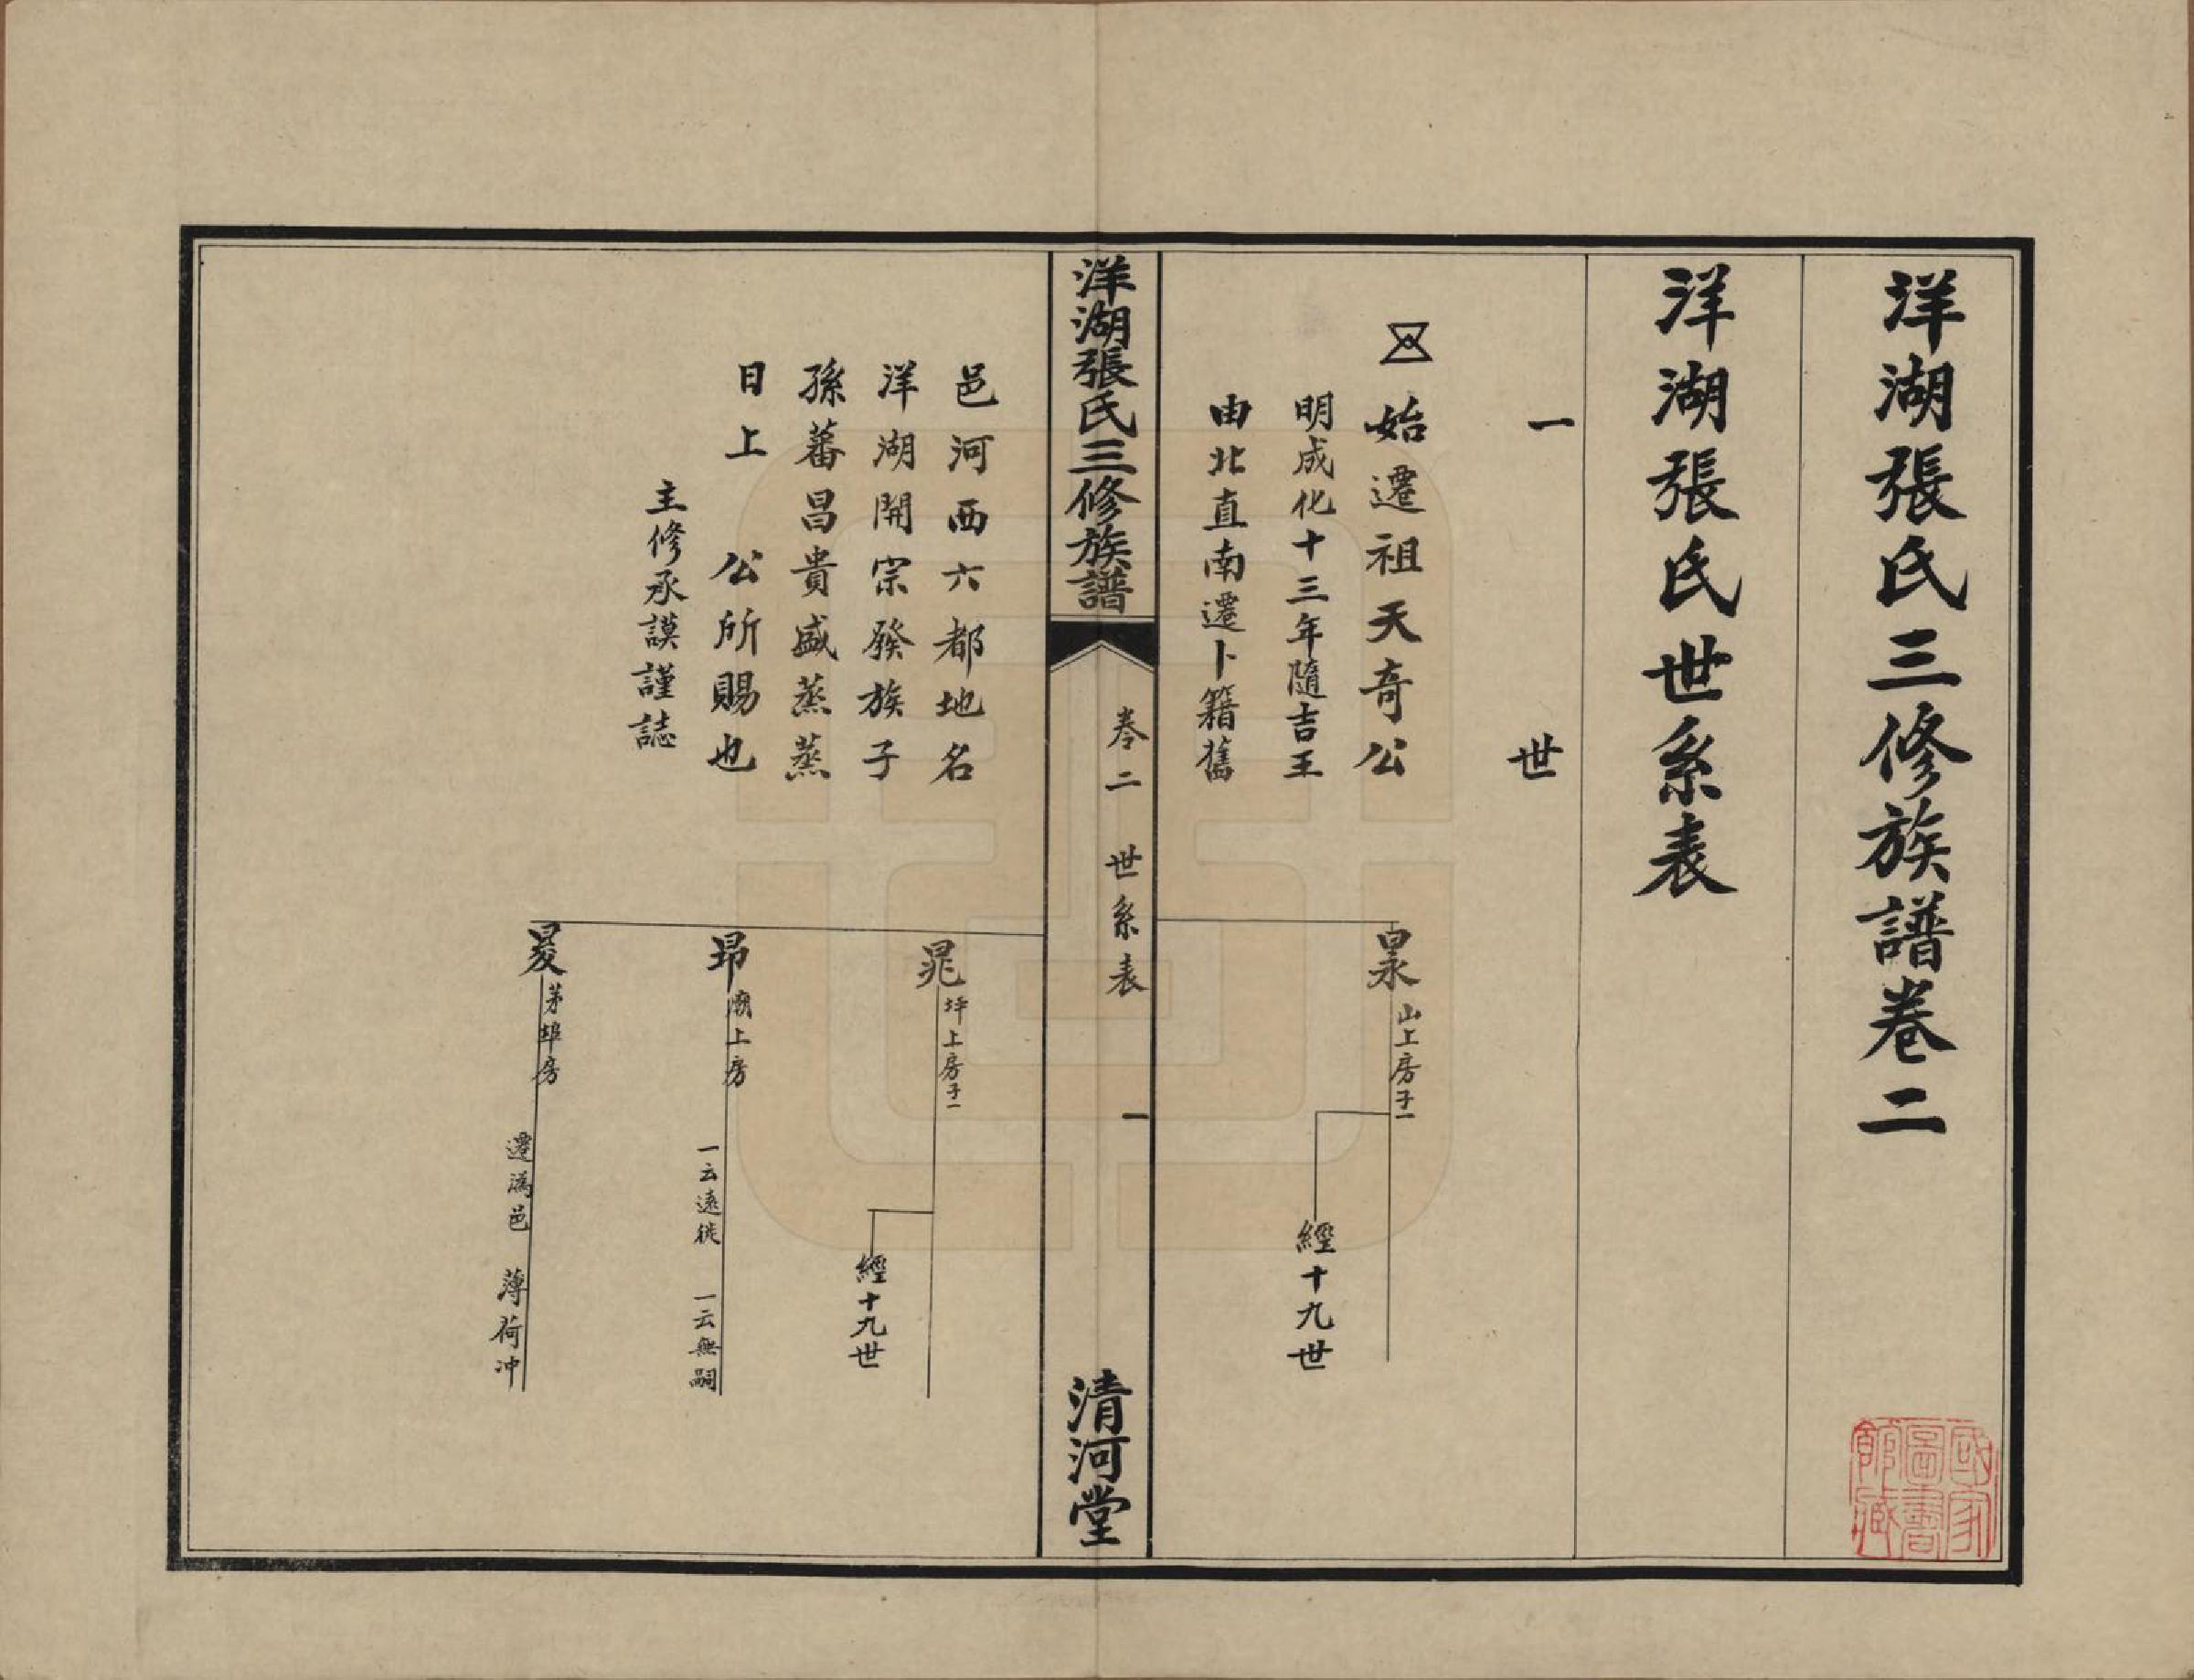 洋湖張氏三修族譜卷二
洋湖張氏世系表
一世
始遷祖天奇公
明成化十三年隨吉王
由北直南遷卜籍舊
㫧
山上房子一
經十九世
洋湖張氏三修族譜
卷二 世系表 一
清河堂
邑河西六都地名
洋湖開宗發族子
孫蕃昌貴盛蒸蒸
日上 公所賜也
主修承謨謹誌
晁
坪上房子一
經十九世
昂
廟上房
一云遠徙 一云無嗣
茅埠房
遷溈邑 薄荷冲
國家圖書館藏